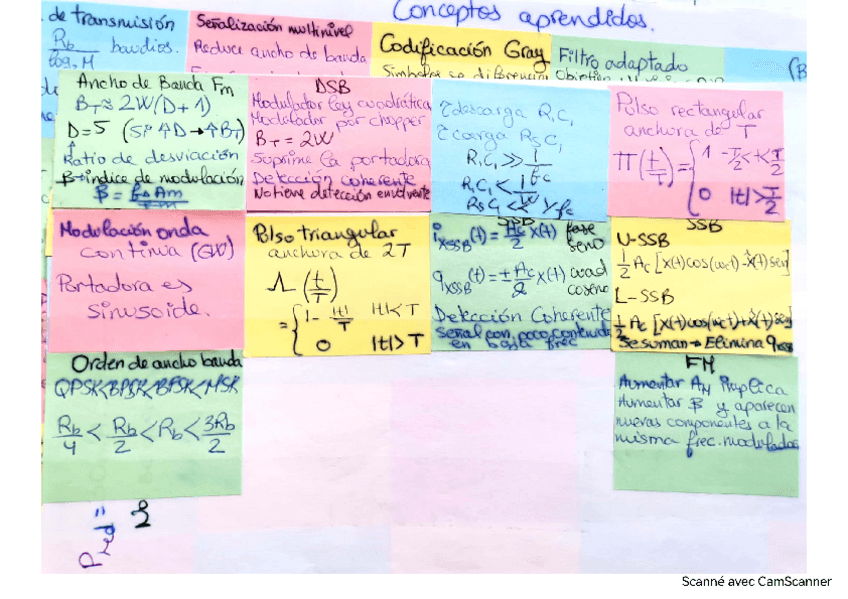 Conceptos aprendidos.
de transmisión
Rb
log₂ M
baudios.
Señalización multinivel
Reduce ancho de banda
Codificación Gray
Filtro adaptado
Ancho de Banda Fm
B_T ≈ 2W(D+1)
D=5 (Si ↑D → ↑B_T)
Ratio de desviación
β→índice de modulación
DSB
Modulador ley cuadrática
Modulador por chopper
B_T = 2W
Suprime la portadora
Detección coherente
No tiene detección envolvente
τ descarga R₁C₁
τ carga RsC₁
R₁C₁ ≫ 1/fc
R₁C₁ < 1/W
Pulso rectangular
anchura de T
Π(t/T) = { 1 -T/2 < t < T/2
0 |t| > T/2
Modulación onda
continua (CW)
Portadora es
sinusoide.
Pulso triangular
anchura de 2T
Λ(t/T)
= { 1 - |t|/T |t| < T
0 |t| > T
i_xSSB(t) = Ac/2 x(t) fase
seno
q_xSSB(t) = ± Ac/2 x̂(t) cuad
coseno
Detección Coherente
Señal con poco contenido
en baja frec
SSB
U-SSB
1/2 Ac [x(t)cos(wct) - x̂(t) sen]
L-SSB
1/2 Ac [x(t)cos(wct) + x̂(t) sen]
Se suman → Elimina q_xSSB
Orden de ancho banda
QPSK<BPSK<BFSK<MSK
Rb/4 < Rb/2 < Rb < 3Rb/2
FM
Aumentar Am implica
Aumentar β y aparecen
nuevas componentes a la
misma frec. moduladas
Scanné avec CamScanner